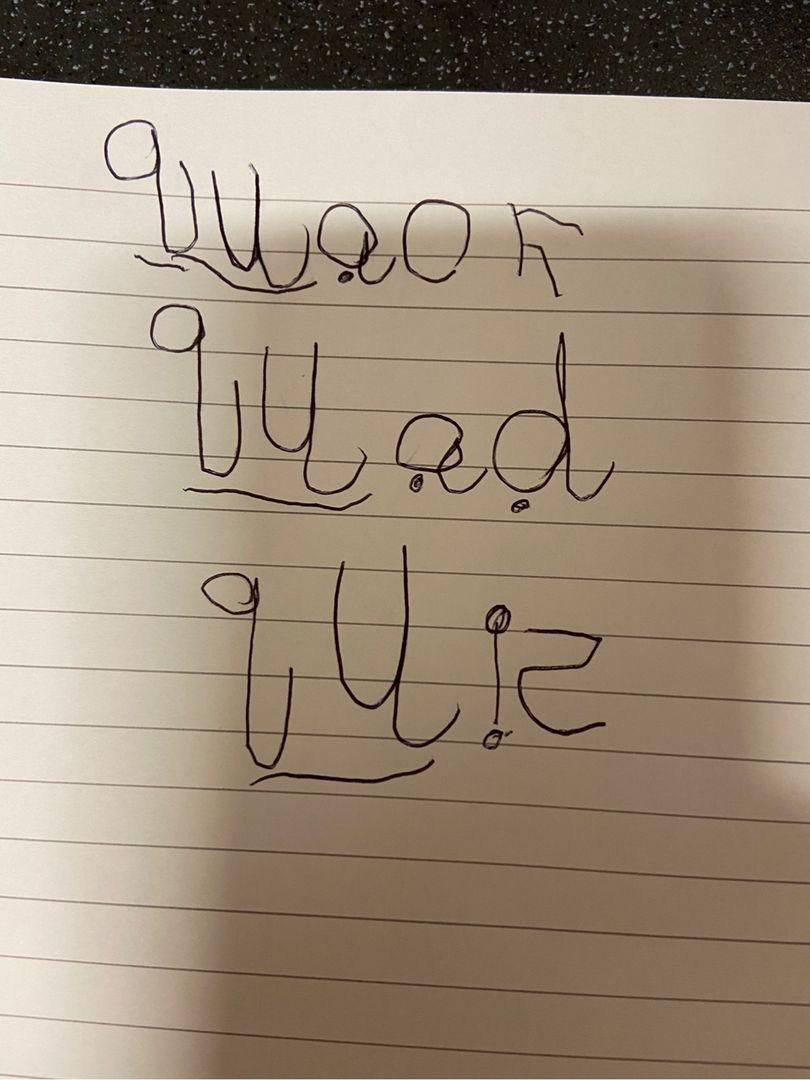 quaor
quad
quiz